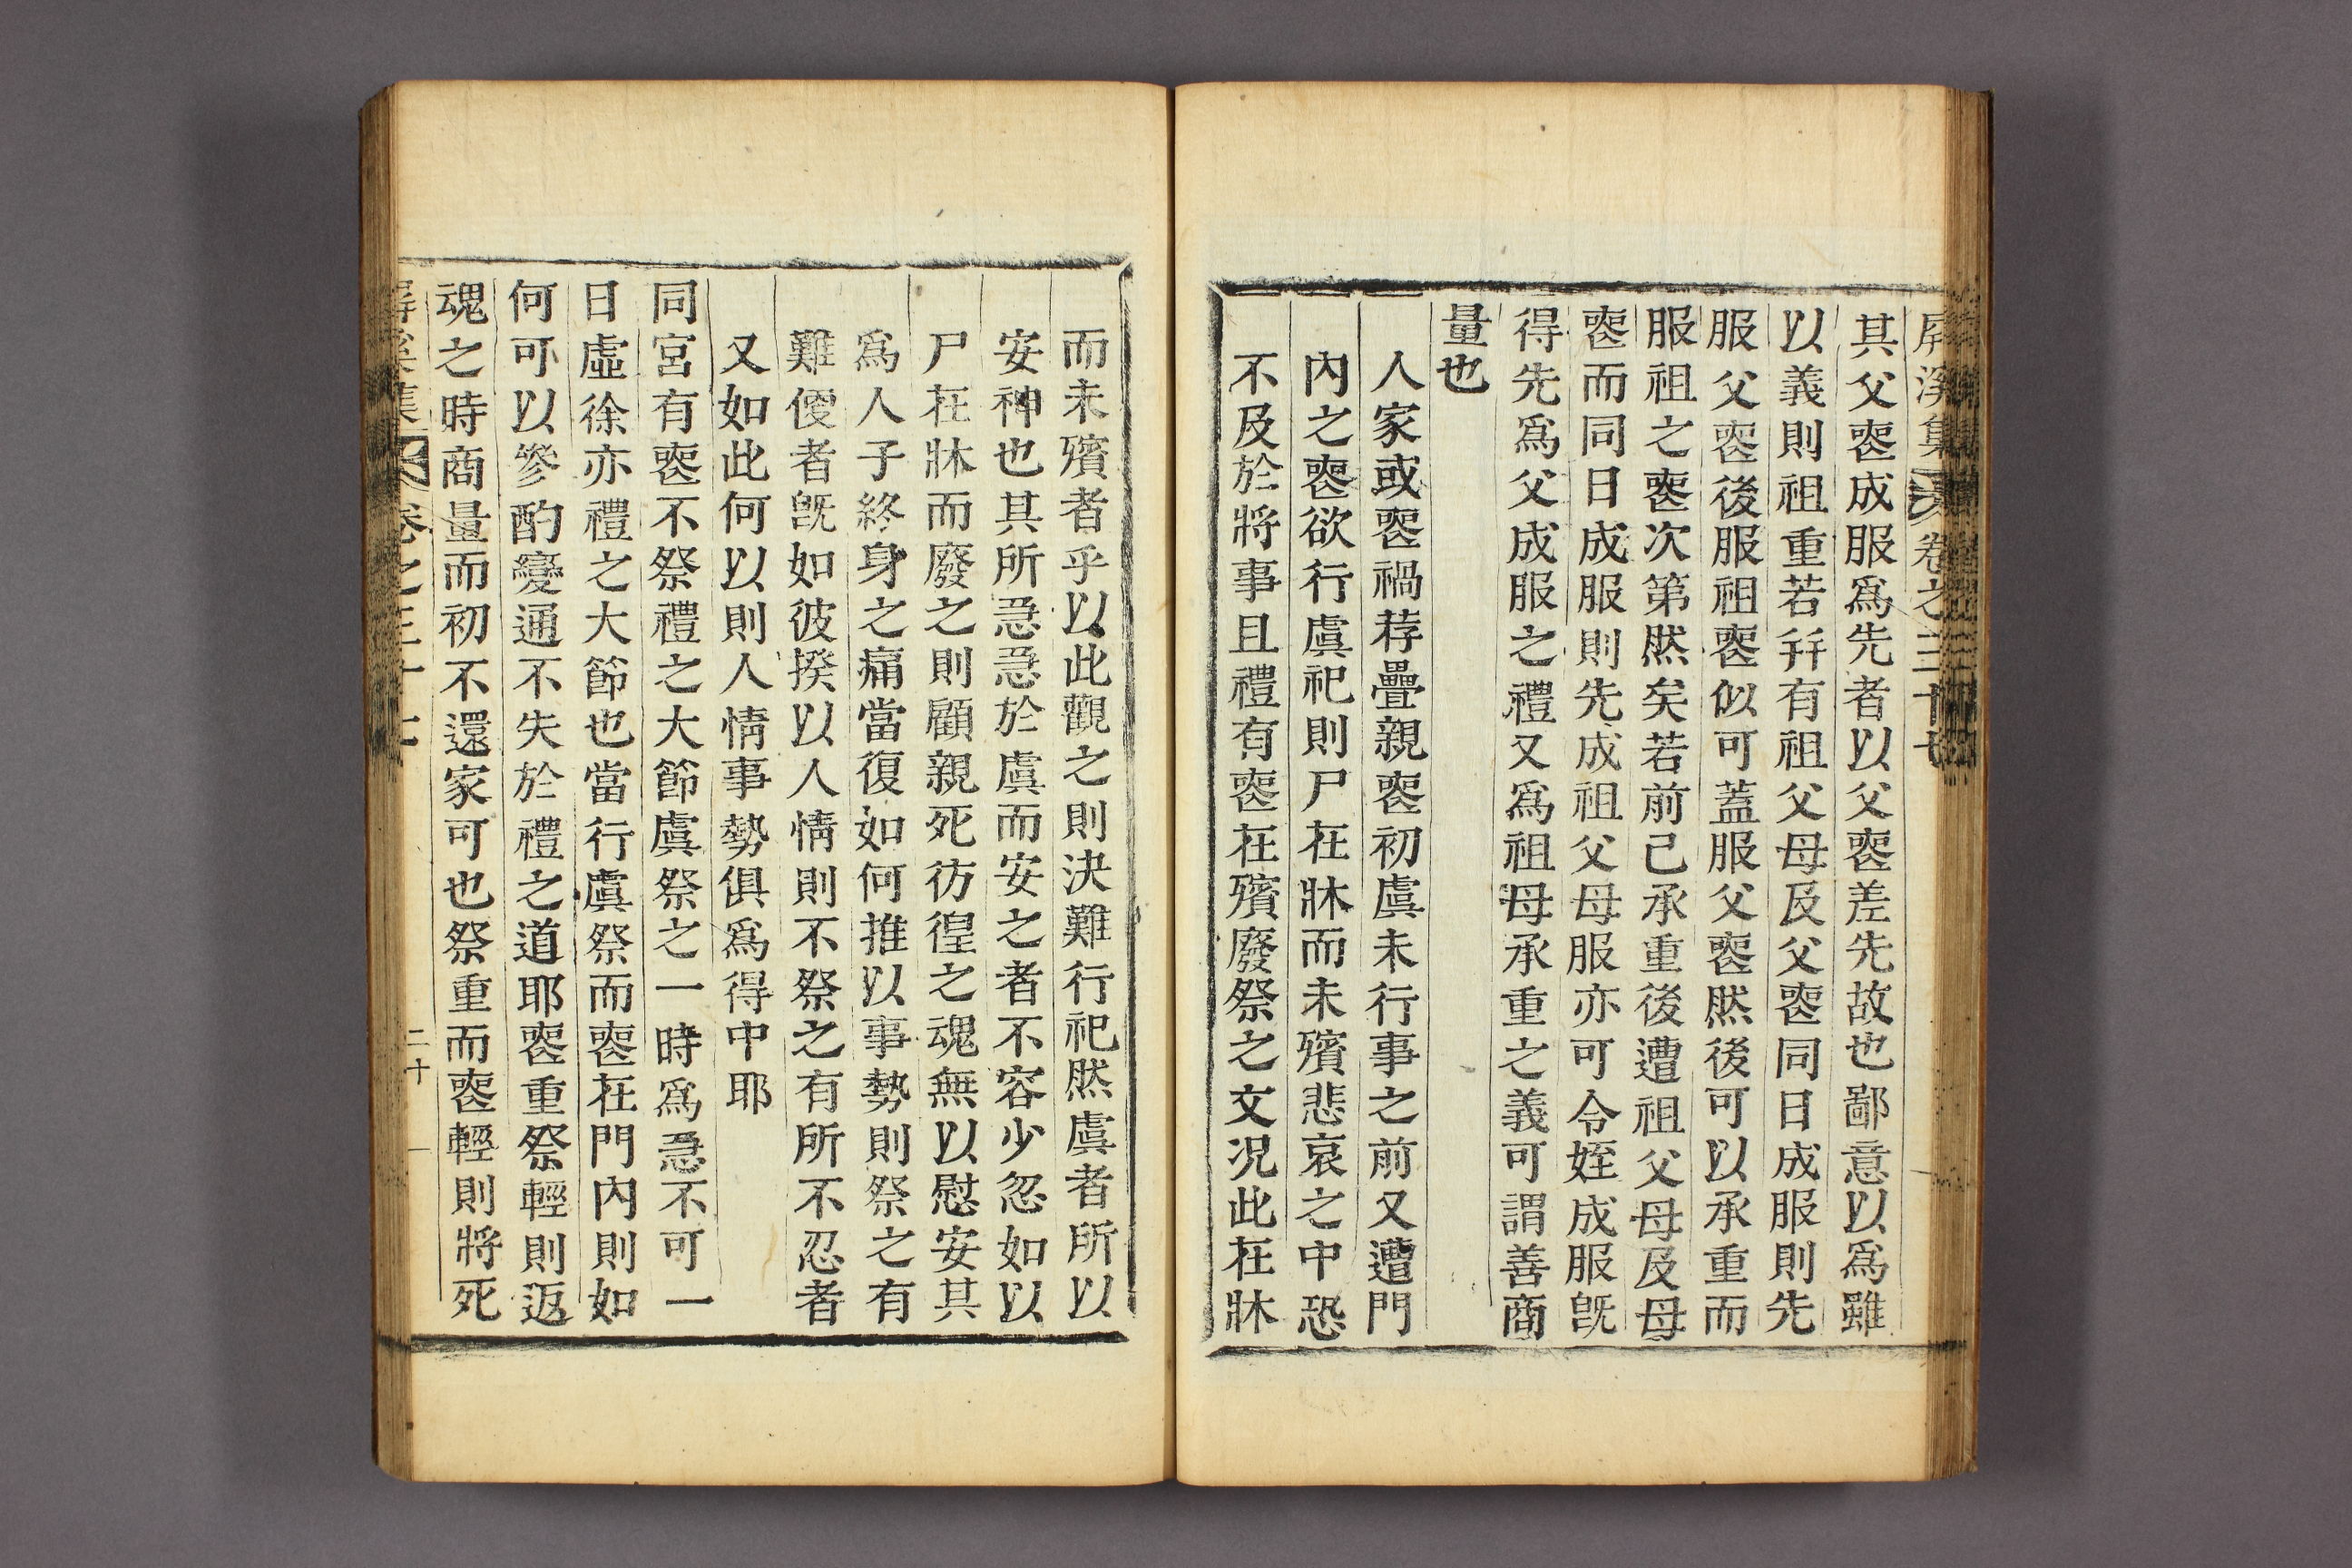 屛溪集 卷之三十七
其父喪成服爲先者以父喪差先故也鄙意以爲雖
以義則祖重若幷有祖父母及父喪同日成服則先
服父喪後服祖喪似可蓋服父喪然後可以承重而
服祖之喪次第然矣若前已承重後遭祖父母及母
喪而同日成服則先成祖父母服亦可令姪成服旣
得先爲父成服之禮又爲祖母承重之義可謂善商
量也
人家或喪禍荐疊親喪初虞未行事之前又遭門
內之喪欲行虞祀則尸在牀而未殯悲哀之中恐
不及於將事且禮有喪在殯廢祭之文况此在牀
而未殯者乎以此觀之則決難行祀然虞者所以
安神也其所急急於虞而安之者不容少忽如以
尸在牀而廢之則顧親死彷徨之魂無以慰安其
爲人子終身之痛當復如何推以事勢則祭之有
難便者旣如彼揆以人情則不祭之有所不忍者
又如此何以則人情事勢俱爲得中耶
同宮有喪不祭禮之大節虞祭之一時爲急不可一
日虛徐亦禮之大節也當行虞祭而喪在門內則如
何可以參酌變通不失於禮之道耶喪重祭輕則返
魂之時商量而初不還家可也祭重而喪輕則將死
屛溪集 卷之三十七 二十一